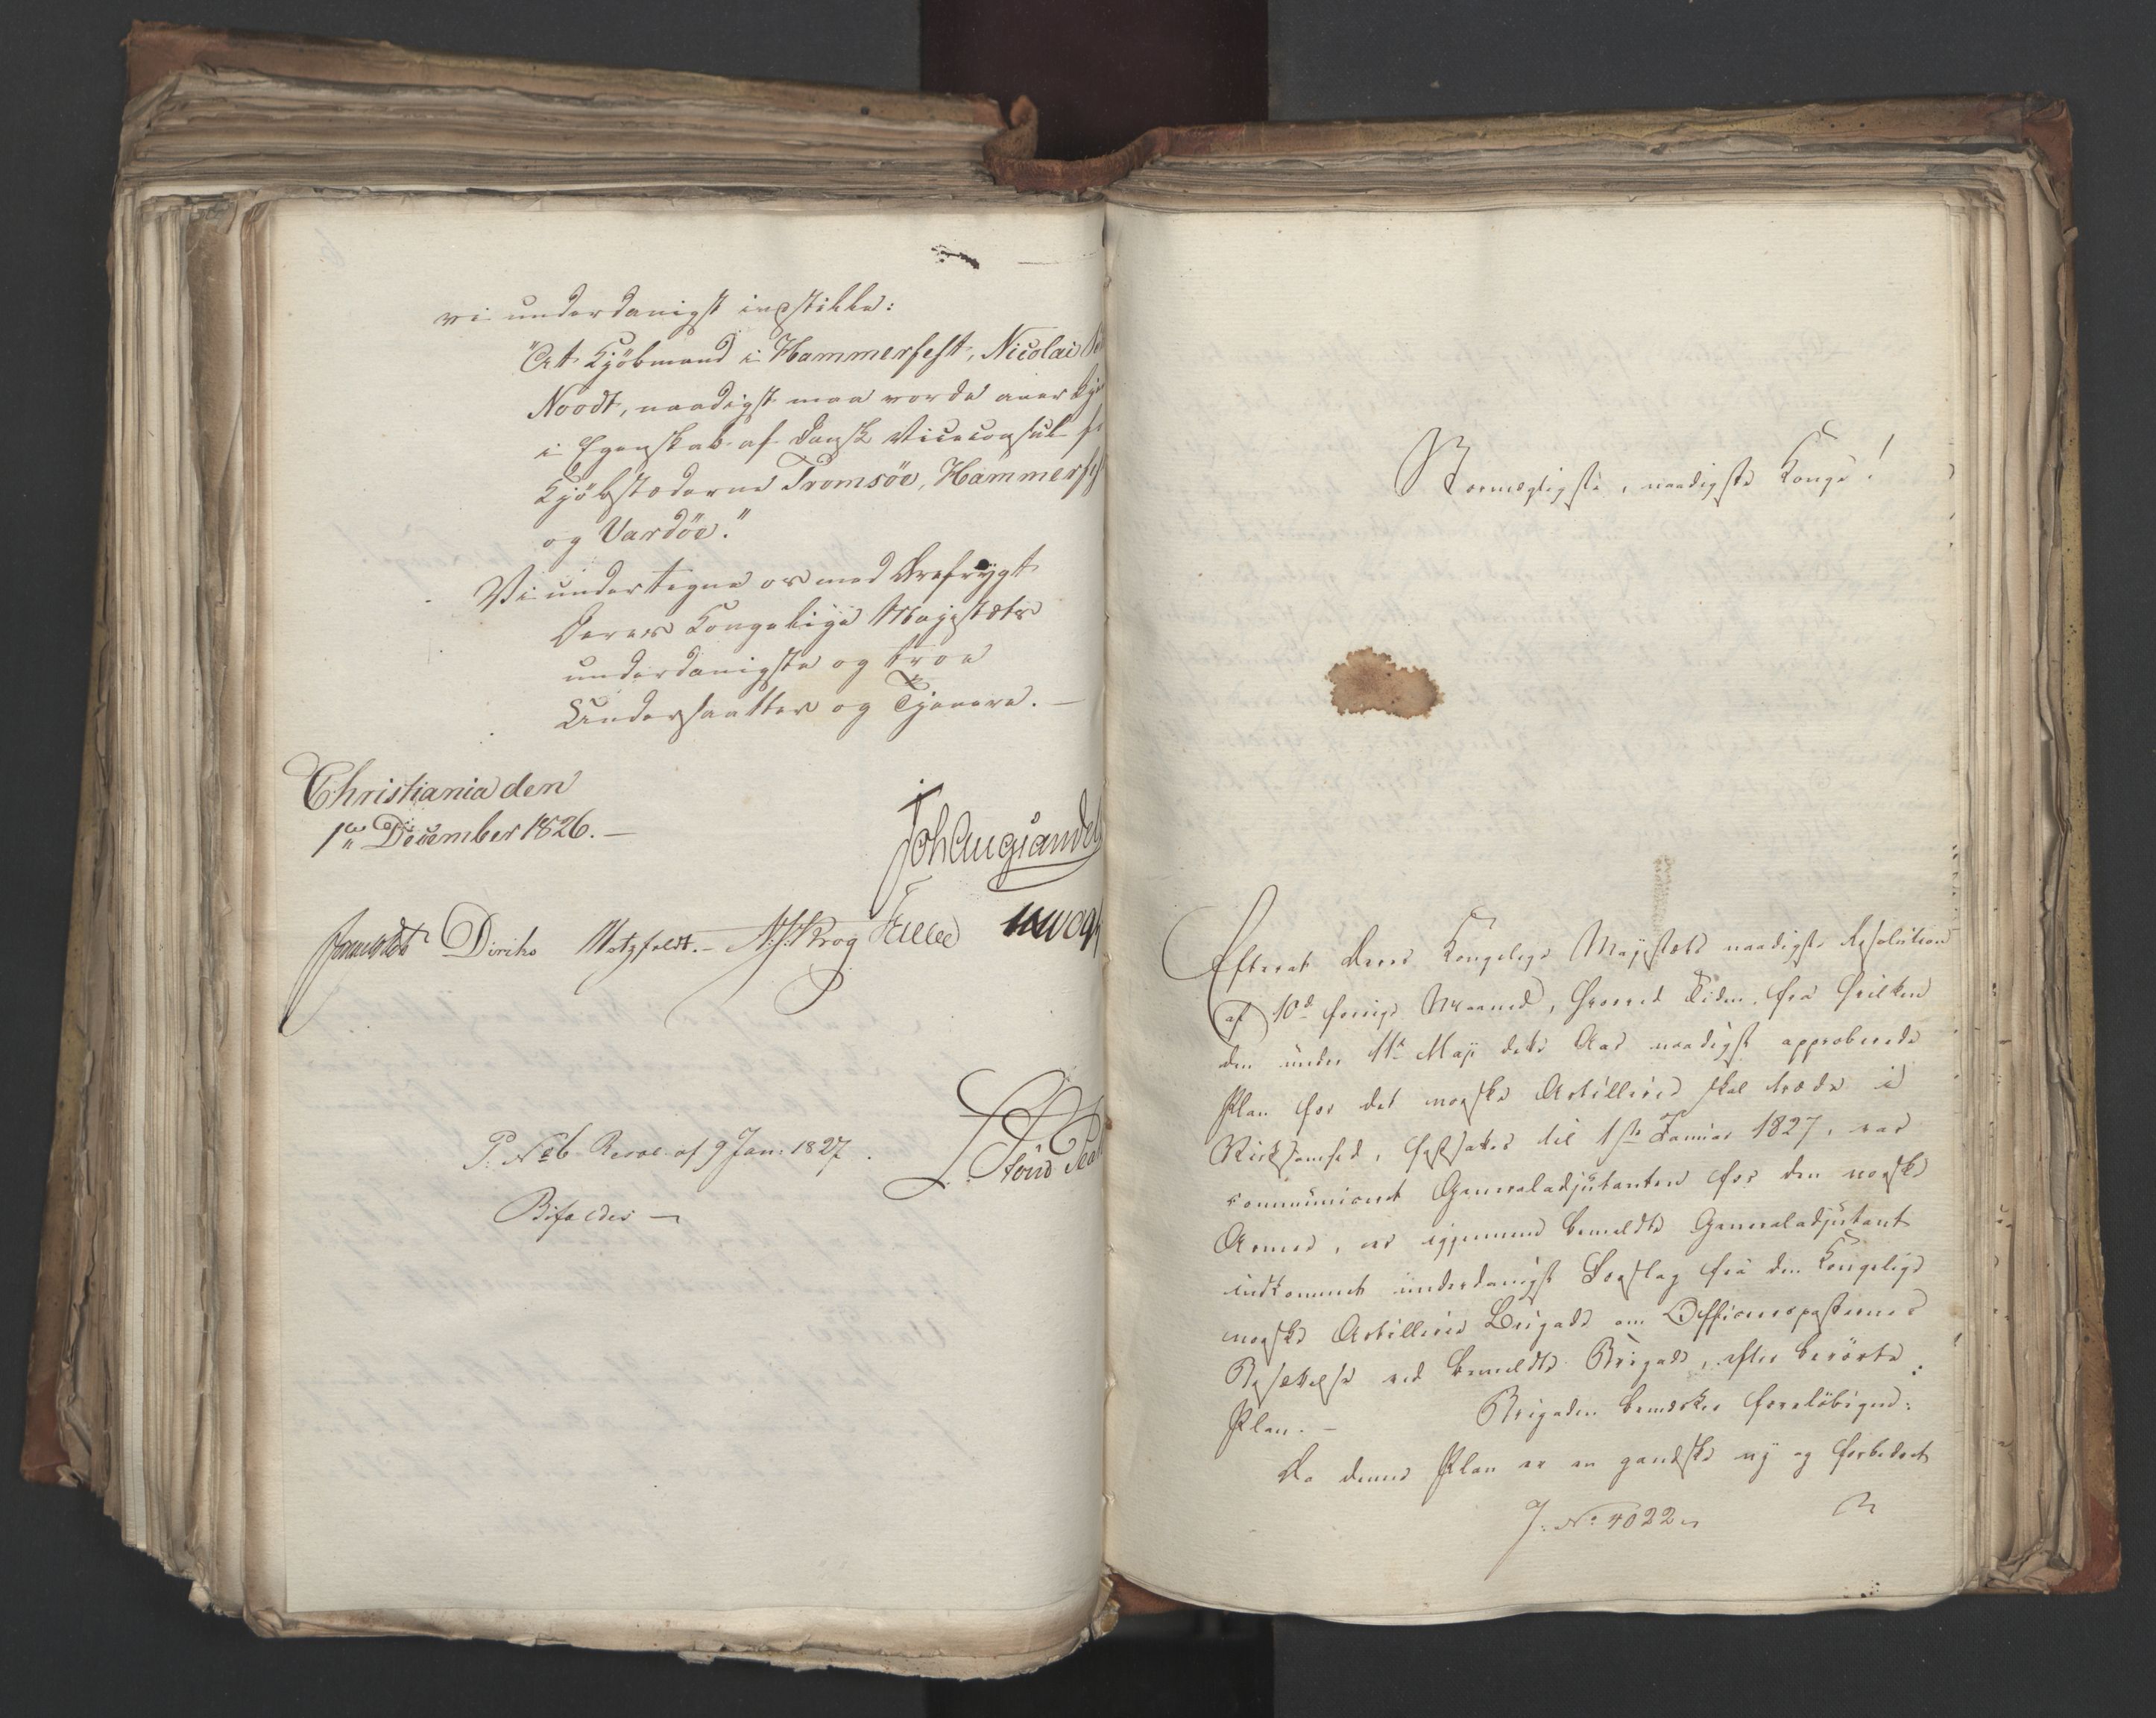 vi underdanigst indstille:
"At Kjöbmand i Hammerfest, Nicolai
Noodt, naadigst maa vorde anerkje
i Egenskab af Dansk Viceconsul f
Kjöbstæderne Tromsöe, Hammerf
og Vardöe."
Vi undertegne os med Ærefrygt
Deres Kongelige Majestæts
underdanigste og troe
Undersaatter og Tjenere. —
Christiania den
1ste December 1826. —
Joh Aug Sandel
Diriks Motzfeldt. — Krog
P: No 6 Resol. af 9 Jan: 1827.
Bifaldes —
Stormægtigste, naadigste Konge!
Efterat Deres Kongelige Majestæts naadigste Resolution
af 10de forrige Maaned, hvorved Tiden, fra hvilken
den under 11te Maji dette Aar naadigst approberede
Plan for det norske Artillerie skal træde i
Virksomhed, fastsættes til 1ste Januar 1827, var
communiceret Generaladjutanten for den norske
Armee, er igjennem bemeldte Generaladjutant
indkommet underdanigst Forslag fra den Kongelige
norske Artillerie Brigade om Officeersposternes
Besættelse ved bemeldte Brigade, efter berörte
Plan. — Brigaden bemærker forelöbigen:
Da denne Plan er en gandske ny og forbedret
J: No 4022